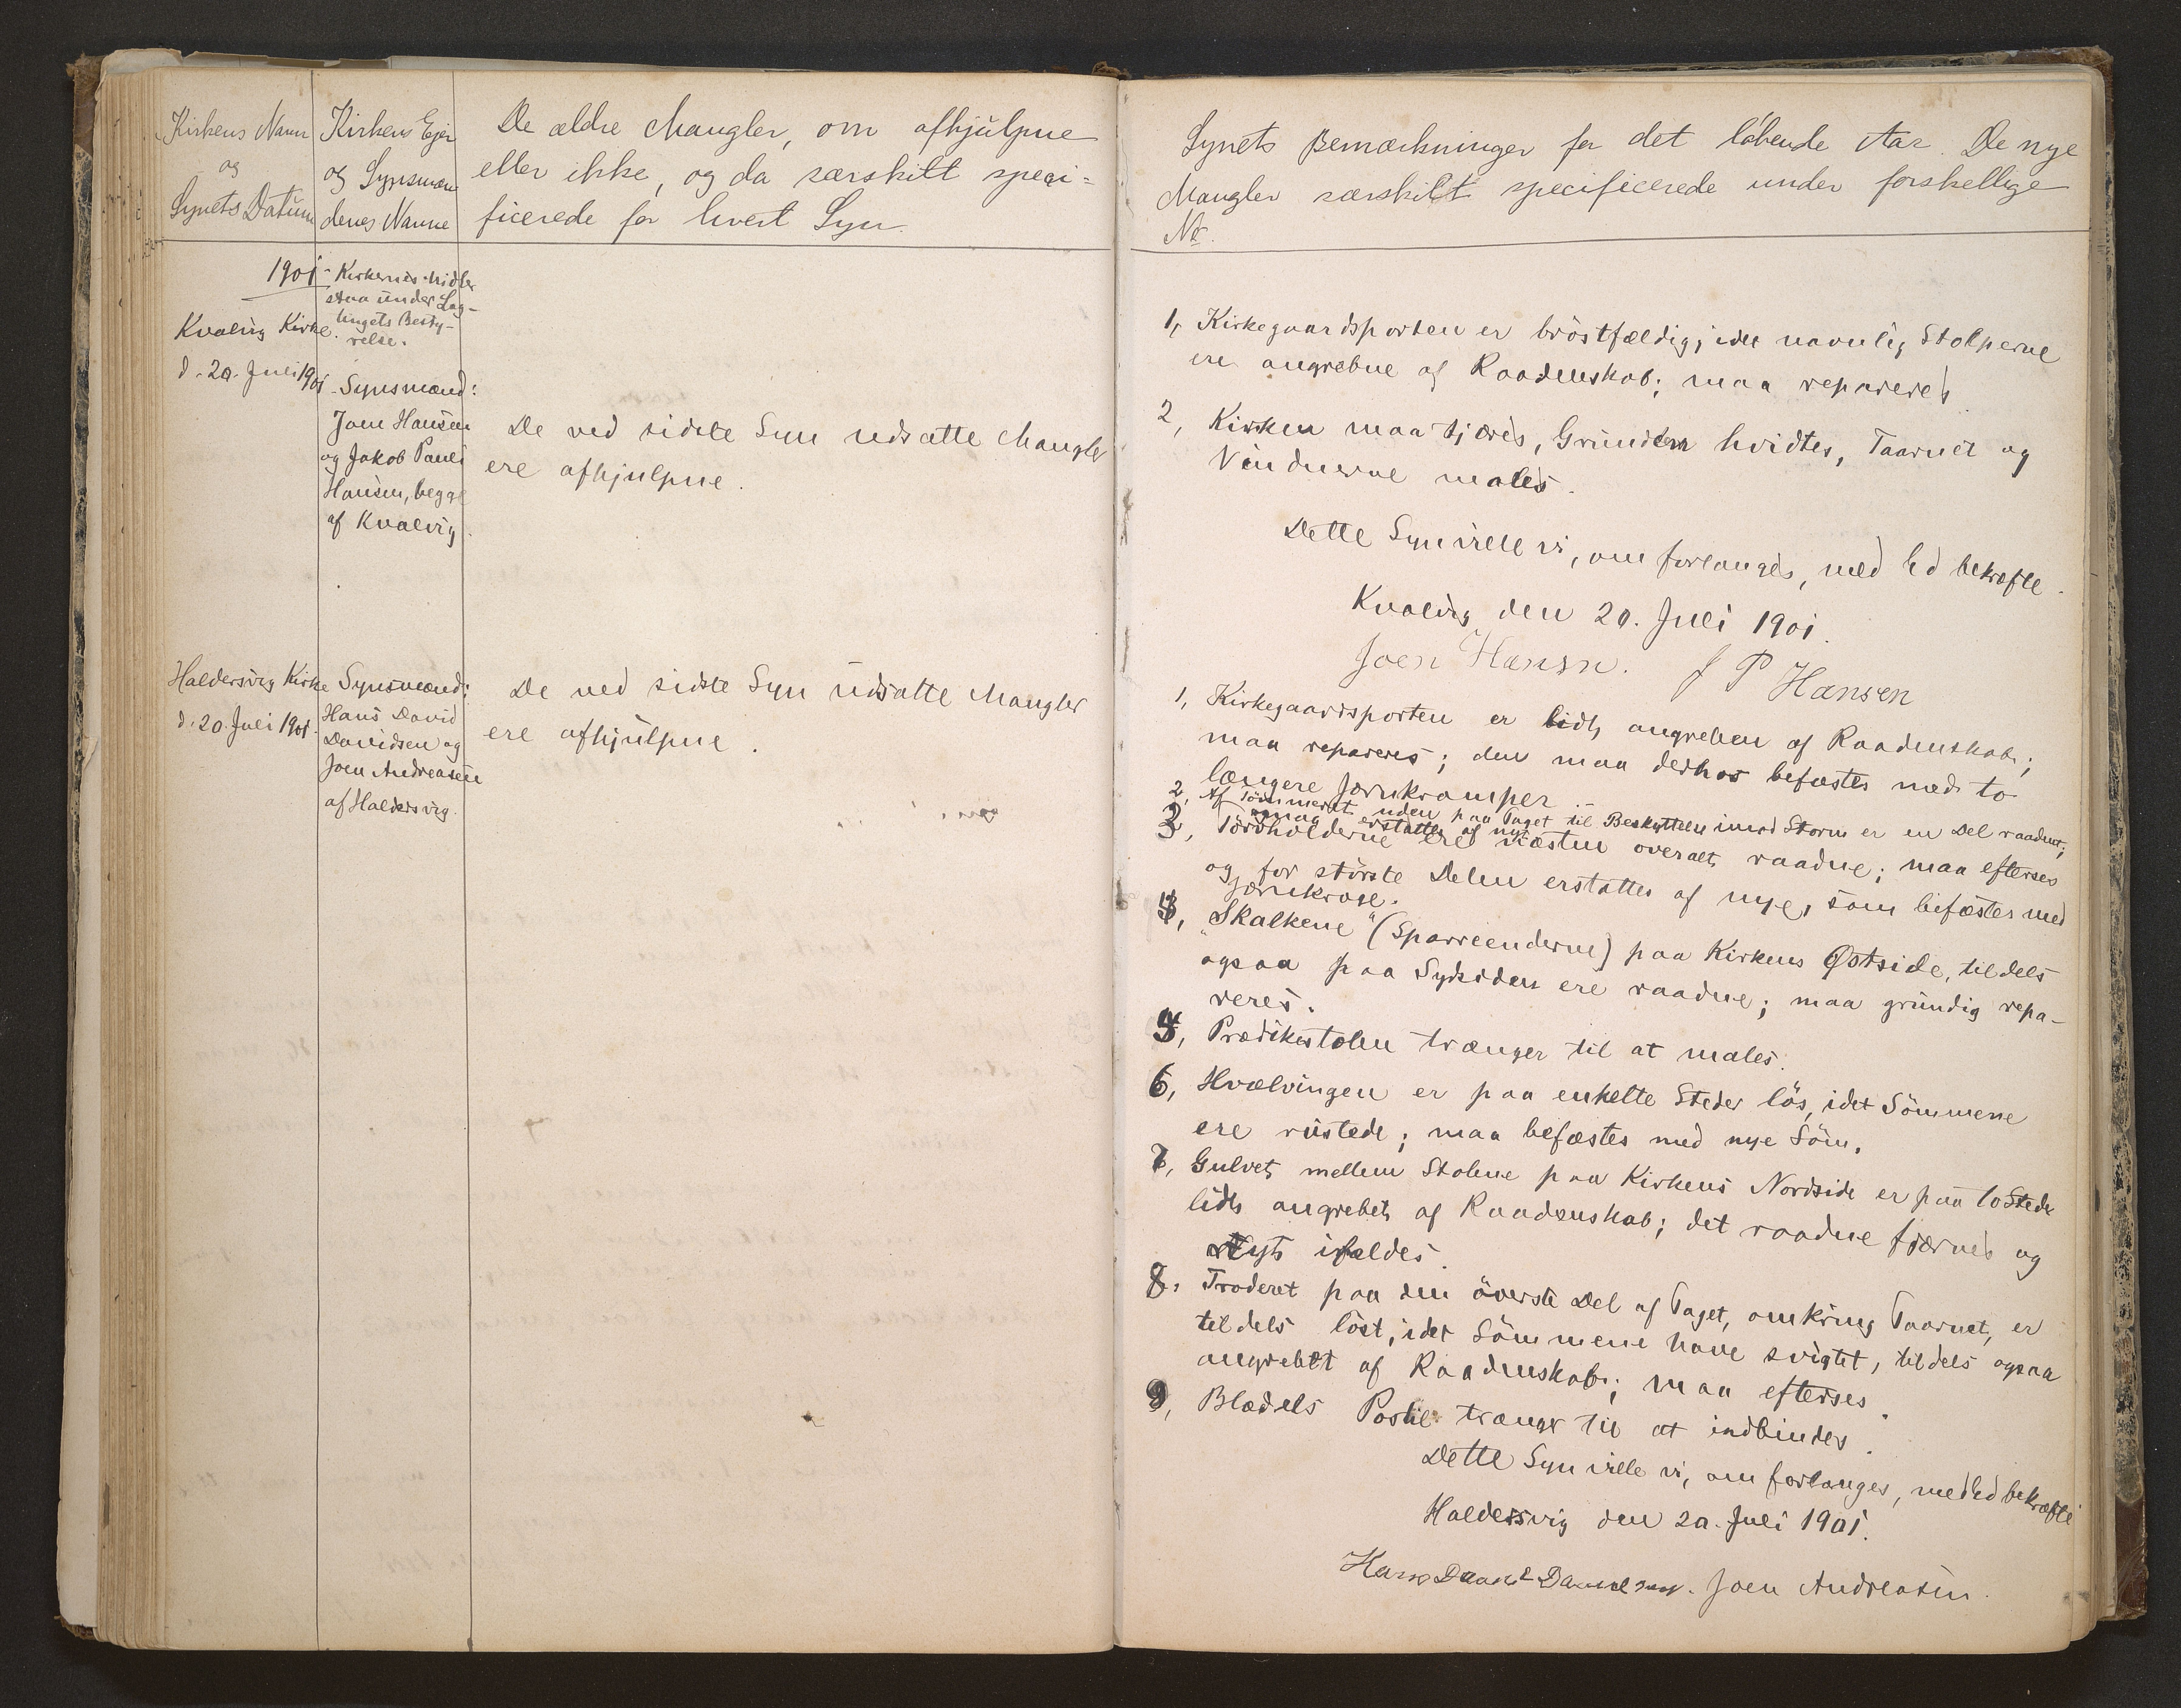 Kirkens Navn
og
Synets Datum
Kirkens Ejer
og Synsmæn
denes Navne
De ældre Mangler, om afhjulpne
eller ikke, og da særskilt speci-
ficerede for hvert Syn.
1901.
Kvalvig Kirke.
d. 20. Juli 1901
Kirkernes Midler
staa under Lag-
tingets Besty-
relse.
Synsmænd:
Joen Hansen
og Jakob Pauli
Hansen, begge
af Kvalvig.
De ved sidste Syn udsatte Mangler
ere afhjulpne.
Haldersvig Kirke
d. 20. Juli 1901.
Synsmænd:
Hans David
Davidsen og
Joen Andreasen
af Haldersvig.
De ved sidste Syn udsatte Mangler
ere afhjulpne.
Synets Bemærkninger for det löbende Aar. De nye
Mangler særskilt specificerede under forskellige
Nr.
1, Kirkegaardsporten er bröstfældig, idet navnlig Stolperne
ere angrebne af Raadenskab; maa repareres.
2, Kirken maa tjæres, Grunden hvidtes, Taarnet og
Vinduerne males.
Dette Syn ville vi, om forlanges, med Ed bekræfte.
Kvalvig den 20. Juli 1901.
Joen Hansn. J P Hansen
1, Kirkegaardsporten er lidt angreben af Raadenskab;
maa repareres; den maa derhos befæstes med to
længere Jernkramper
2, Af Tömmeret uden paa Taget til Beskyttelse imod Storm er en Del raadent;
maa erstattes af nyt
3, Törvholderne ere næsten overalt raadne; maa efterses
og for störste Delen erstattes af nye, som befæstes med
Jernkroge.
4, "Skalkene" (Sparreenderne) paa Kirkens Østside, tildels
ogsaa paa Sydsiden ere raadne; maa grundig repa-
reres.
5, Prædikestolen trænger til at males.
6, Hvælvingen er paa enkelte Steder lös, idet Sömmene
ere rustede; maa befæstes med nye Söm.
7, Gulvet mellem Stolene paa Kirkens Nordside er paa to Steder
lidt angrebet af Raadenskab; det raadne fjærnes og
Nyt ifældes.
8. Træderet paa den överste Del af Taget, omkring Taarnet, er
tildels löst, idet Sömmene have svigtet, tildels ogsaa
angrebet af Raadenskab; maa efterses.
9, Blædels Postil trænger til at indbindes.
Dette Syn ville vi, om forlanges, med Ed bekræfte
Haldersvig den 20. Juli 1901.
Hans Joen Andreasen.